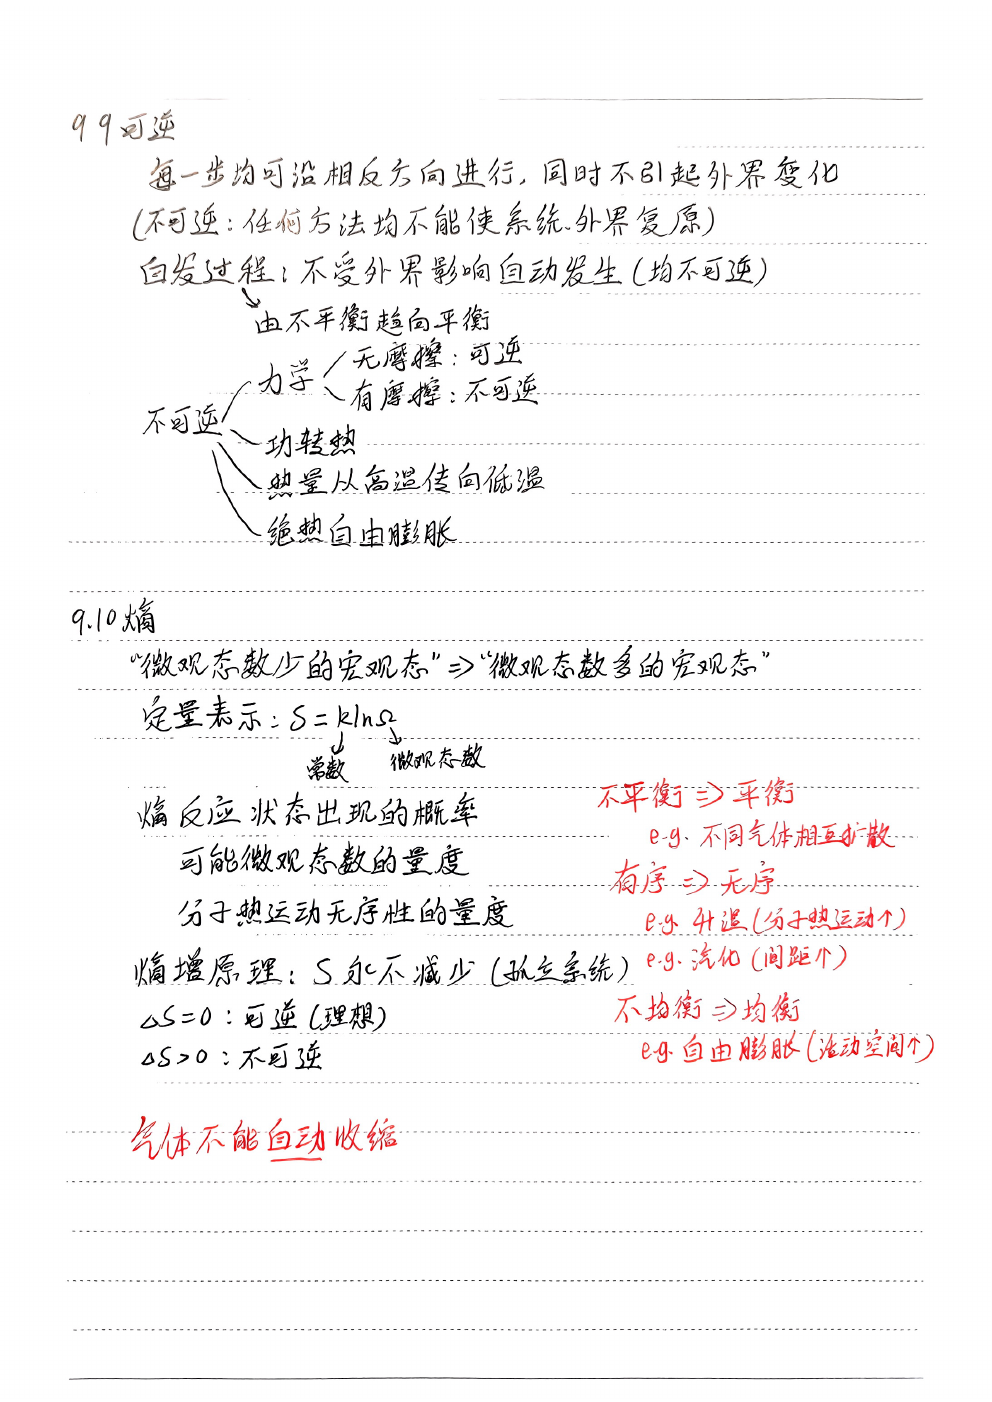 9 9 可逆
每一步均可沿相反方向进行, 同时不引起外界变化
(不可逆: 任何方法均不能使系统、外界复原)
自发过程: 不受外界影响自动发生 (均不可逆)
由不平衡趋向平衡
力学
无摩擦: 可逆
有摩擦: 不可逆
不可逆
功转热
热量从高温传向低温
绝热自由膨胀
9.10 熵
“微观态数少的宏观态” ⇒ “微观态数多的宏观态”
定量表示: S = klnΩ
常数 微观态数
熵反应状态出现的概率
可能微观态数的量度
分子热运动无序性的量度
熵增原理: S永不减少 (孤立系统)
△S=0: 可逆 (理想)
△S>0: 不可逆
不平衡 ⇒ 平衡
e.g. 不同气体相互扩散
有序 ⇒ 无序
e.g. 升温 (分子热运动↑)
e.g. 汽化 (间距↑)
不均衡 ⇒ 均衡
e.g. 自由膨胀 (活动空间↑)
气体不能自动收缩